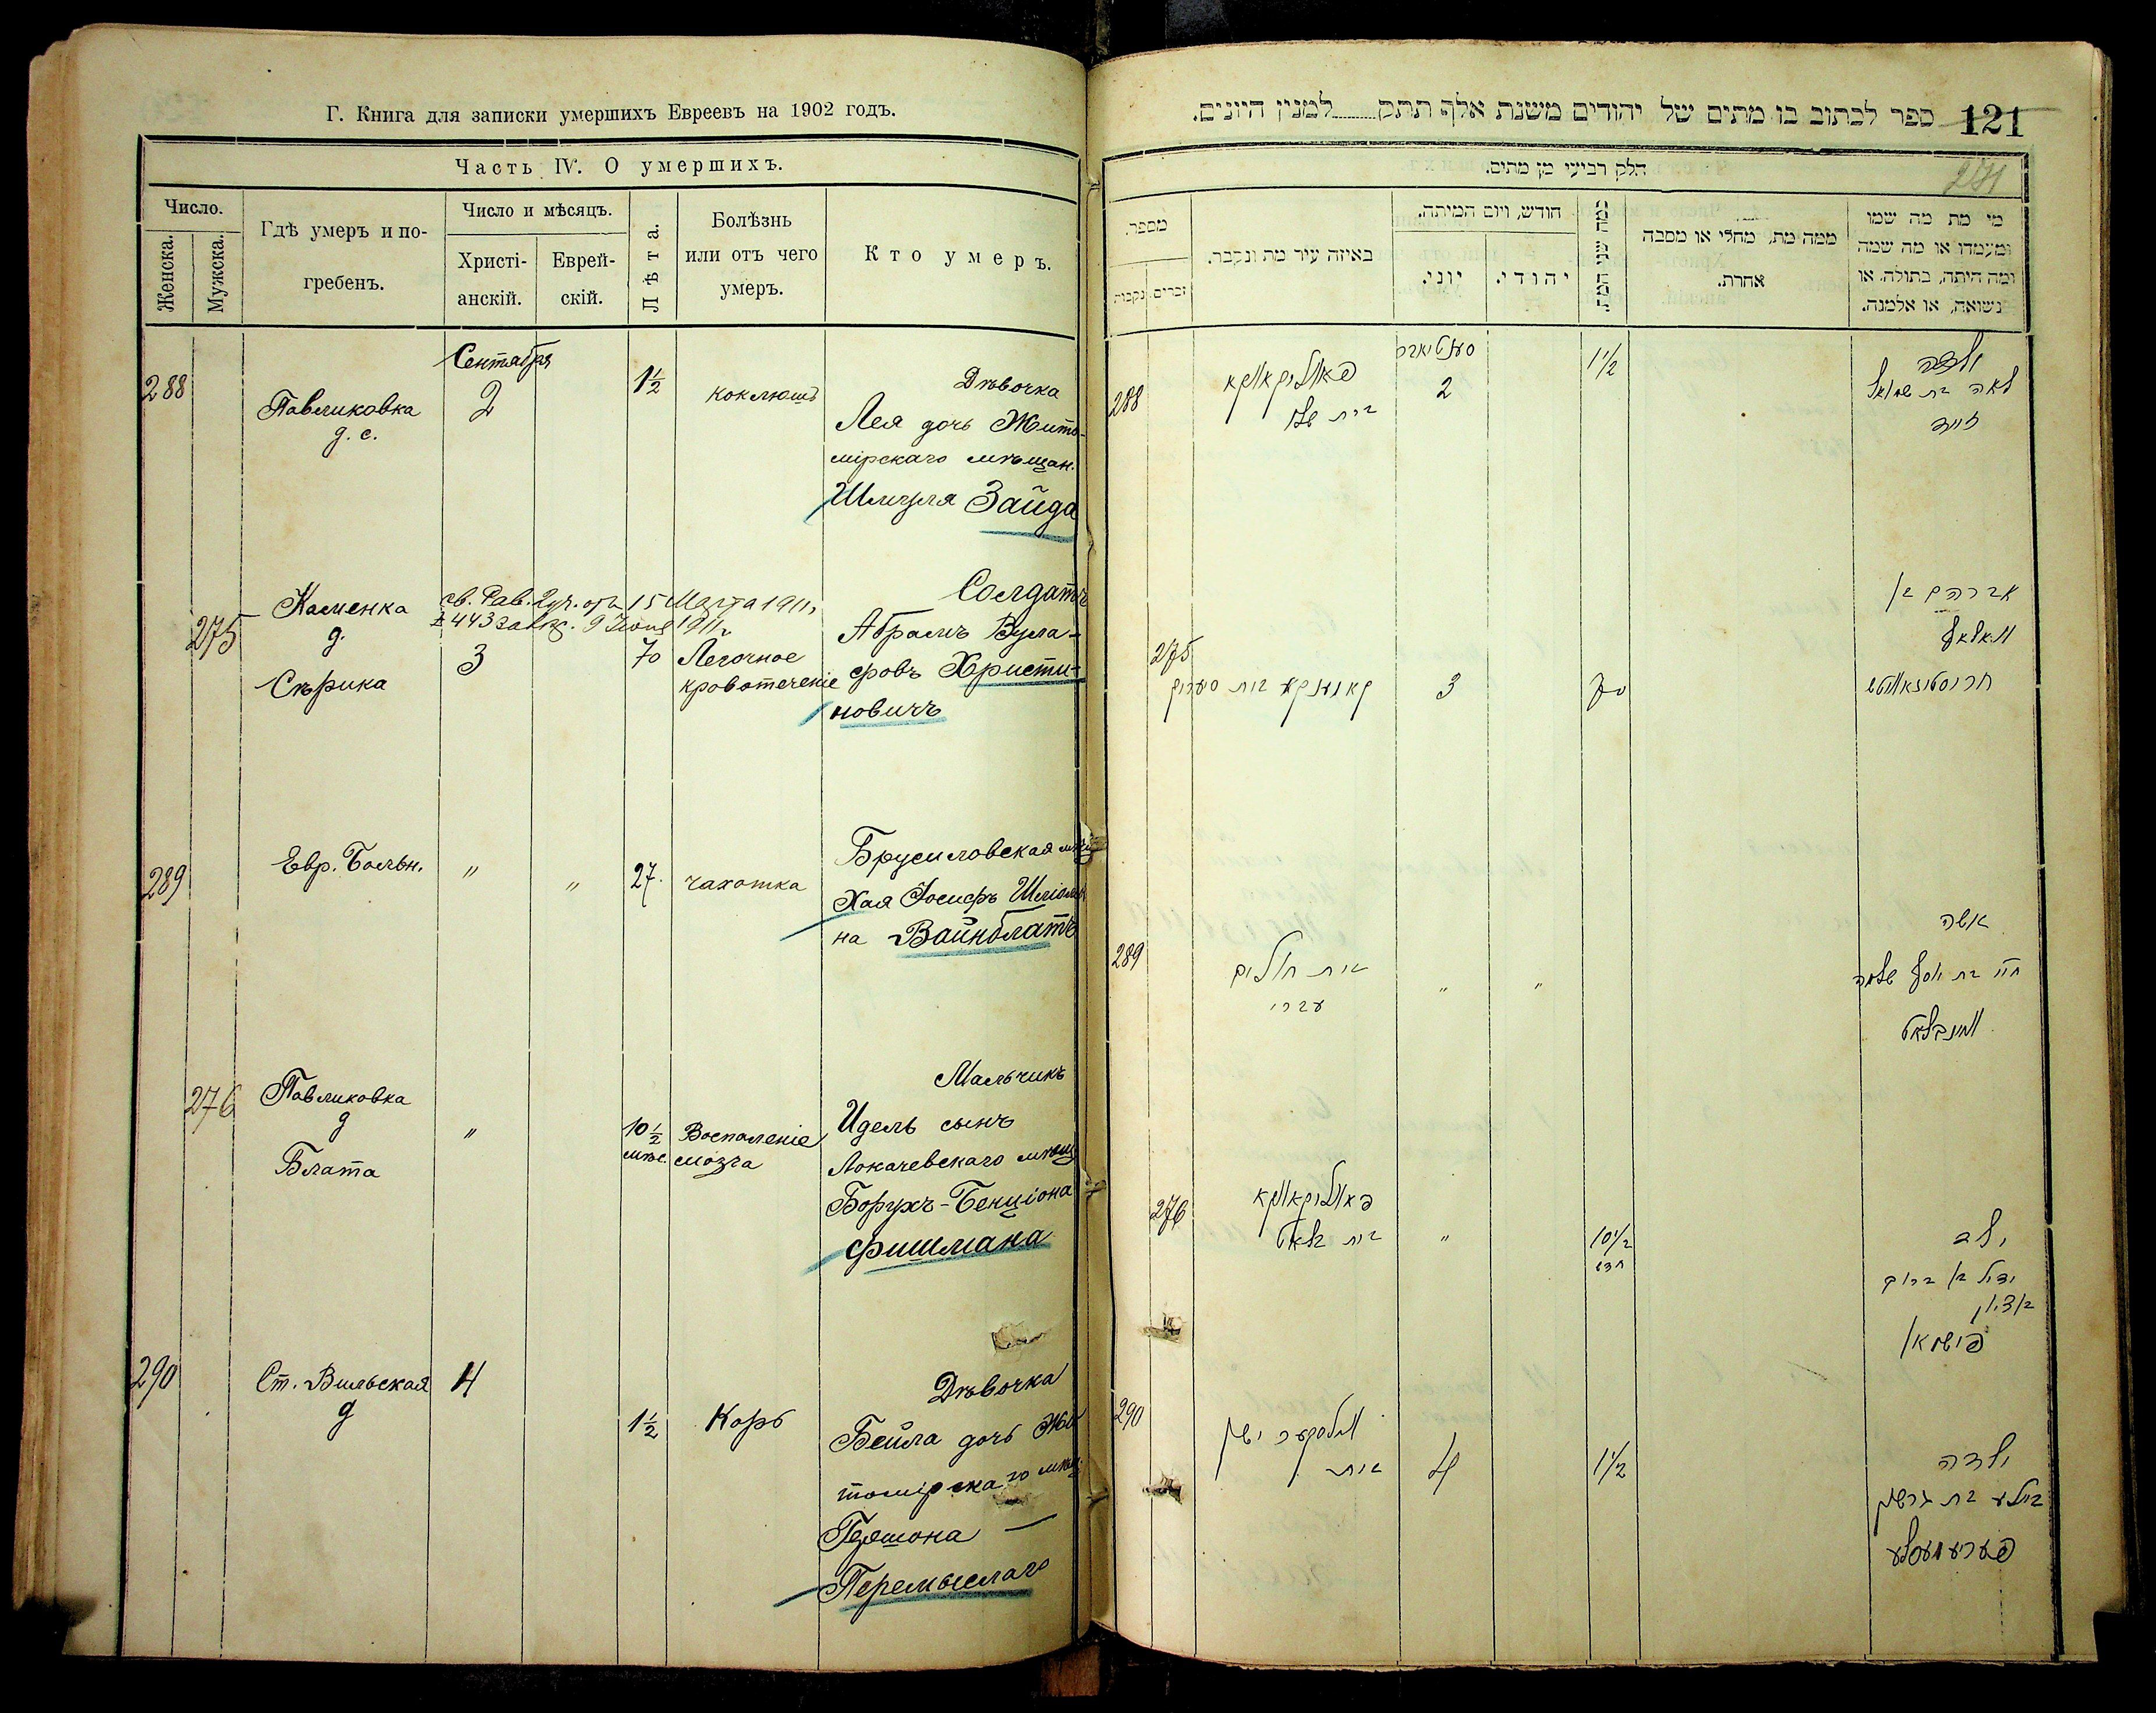 Г. Книга для записки умершихъ Евреевъ на 1902 годъ.
Часть IV. О умершихъ.
Число.
Женска.
Мужска.
Гдѣ умеръ и по-
гребенъ.
Число и мѣсяцъ.
Христі-
анскій.
Еврей-
скій.
Лѣта.
Болѣзнь
или отъ чего
умеръ.
Кто умеръ.
288
Павликовка
д. с.
Сентября
2
1½
коклюшъ
Дѣвочка
Лея дочь Жито-
мірскаго мѣщан.
Шмуля Зайда
275
Каменка
д.
Сѣрика
св. Рав. 15 Марта 1911
443 9 1911
3
70
Легочное
кровотеченіе
Солдатъ
Абрамъ Вула-
фовъ Христи-
новичъ
289
Евр. Больн.
"
"
27.
чахотка
Брусиловская мѣщ
Хая Іосифъ Шліом
на Вайнблатъ
276
Павликовка
д
Блата
"
10½
мѣс.
Воспаленіе
мозга
Мальчикъ
Идель сынъ
Локачевскаго мѣщ
Борухъ-Бенціона
Фишмана
290
Ст. Вильская
д
4
1½
Корь
Дѣвочка
Бейла дочь Жи
томірскаго мѣщ
Гершона —
Перемыслаго
ספר לכתוב בו מתים של יהודים משנת אלף תתק למנין היונים.
121
271
חלק רביעי מן מתים.
מספר.
זכרים.
נקבות
באיזה עיר מת ונקבר.
חודש, ויום המיתה.
יוני.
יהודי.
כמה שני המת.
ממה מת, מחלי או מסבה
אחרת.
מי מת מה שמו
ומעמדו או מה שמה
ומה היתה, בתולה. או
נשואה, או אלמנה.
288
פאוליקאווקא
בית
2
1½
ילדה
לאה בת שמואל
זייד
275
3
70
אברהם בן
וואלף
289
בית חולים
עברי
"
"
אשה
חי' בת יוסף שלמה
ווינבלאט
276
פאוליקאווקא
בית בלאט
"
10½
חדש
ילד
יודיל בן ברוך
בנציון
פישמאן
290
בית
4
1½
ילדה
ביילע בת גרשון